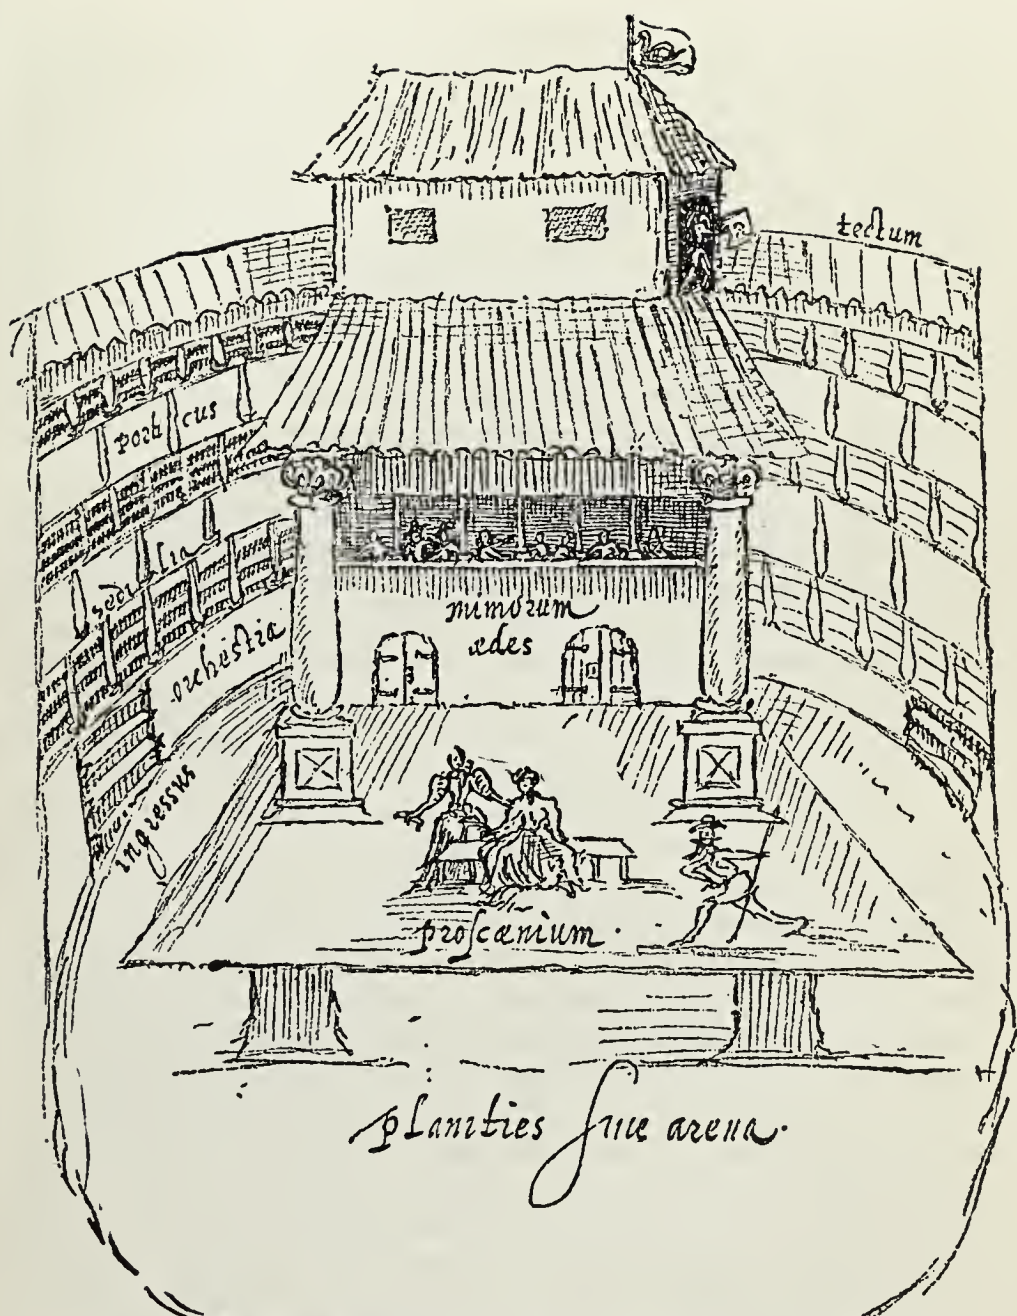 tectum
porticus
sedilia
orchestra
mimorum
ædes
ingressus
proſcænium.
planities ſiue arena.